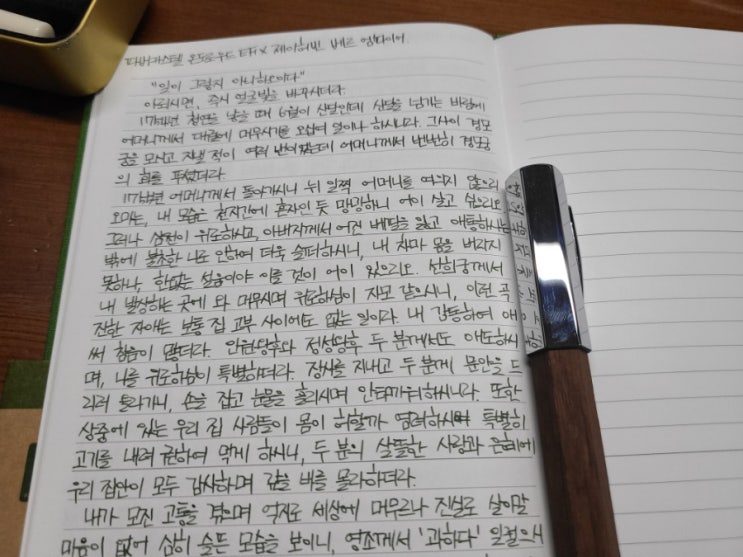 파버카스텔 온도로 우드 EF X 제이허빈 베르 엉피이어.
"일이 그렇지 아니하오이다"
아뢰시면, 즉시 얼굴빛을 바꾸시더라.
1755년 첨연을 낳을 때 6월이 산달인데 산달을 넘기는 바람에
어머니께서 대궐에 머무시기를 오십여 일이나 하시니라. 그사이 경모
궁을 모시고 지낼 적이 여러 번이었는데 어머니께서 번번히 경모궁
의 화를 푸셨더라.
1755년 어머니께서 돌아가시니 뉘 일찍 어머니를 여의지 않으리
오마는, 내 모습은 천지간에 혼자인 듯 망망하니 어이 살고 싶으리오.
그러나 상전이 위로하시고, 아버지께서 어진 배필을 잃고 애통하시는
밖에 불초한 나로 인하여 더욱 슬퍼하시니, 내 차마 몸을 버리지
못하나, 한없는 설움이야 이를 것이 어이 있으리오. 선희궁께서
내 발상하는 곳에 와 머무시며 위로하심이 자모 같으시니, 이런 곡
진한 자애는 보통 집 고부 사이에도 없는 일이라. 내 감동하여 애
써 참음이 많더라. 인원왕후와 정성왕후 두 분께서도 애도하시
며, 나를 위로하심이 특별하더라. 장사를 지내고 두 분께 문안을 드
리러 올라가니, 손을 잡고 눈물을 흘리시며 안타까워하시니라. 또한
상중에 있는 우리 집 사람들이 몸이 허할까 염려하시며 특별히
고기를 내려 권하여 먹게 하시니, 두 분의 살뜰한 사랑과 은혜에
우리 집안이 모두 감사하며 갚을 바를 몰라하더라.
내가 모진 고통을 겪으며 억지로 세상에 머무르나 진실로 살아갈
마음이 없어 심히 슬픈 모습을 보이니, 영조께서 '과하다' 일컬으시